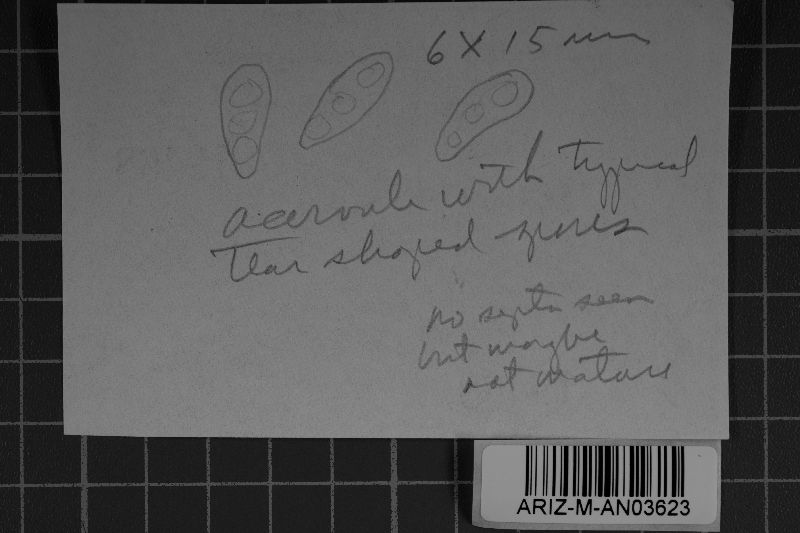 6 X 15 mm
acervule with typical
tear shaped spores
no septa seen
but maybe
not mature
ARIZ-M-AN03623